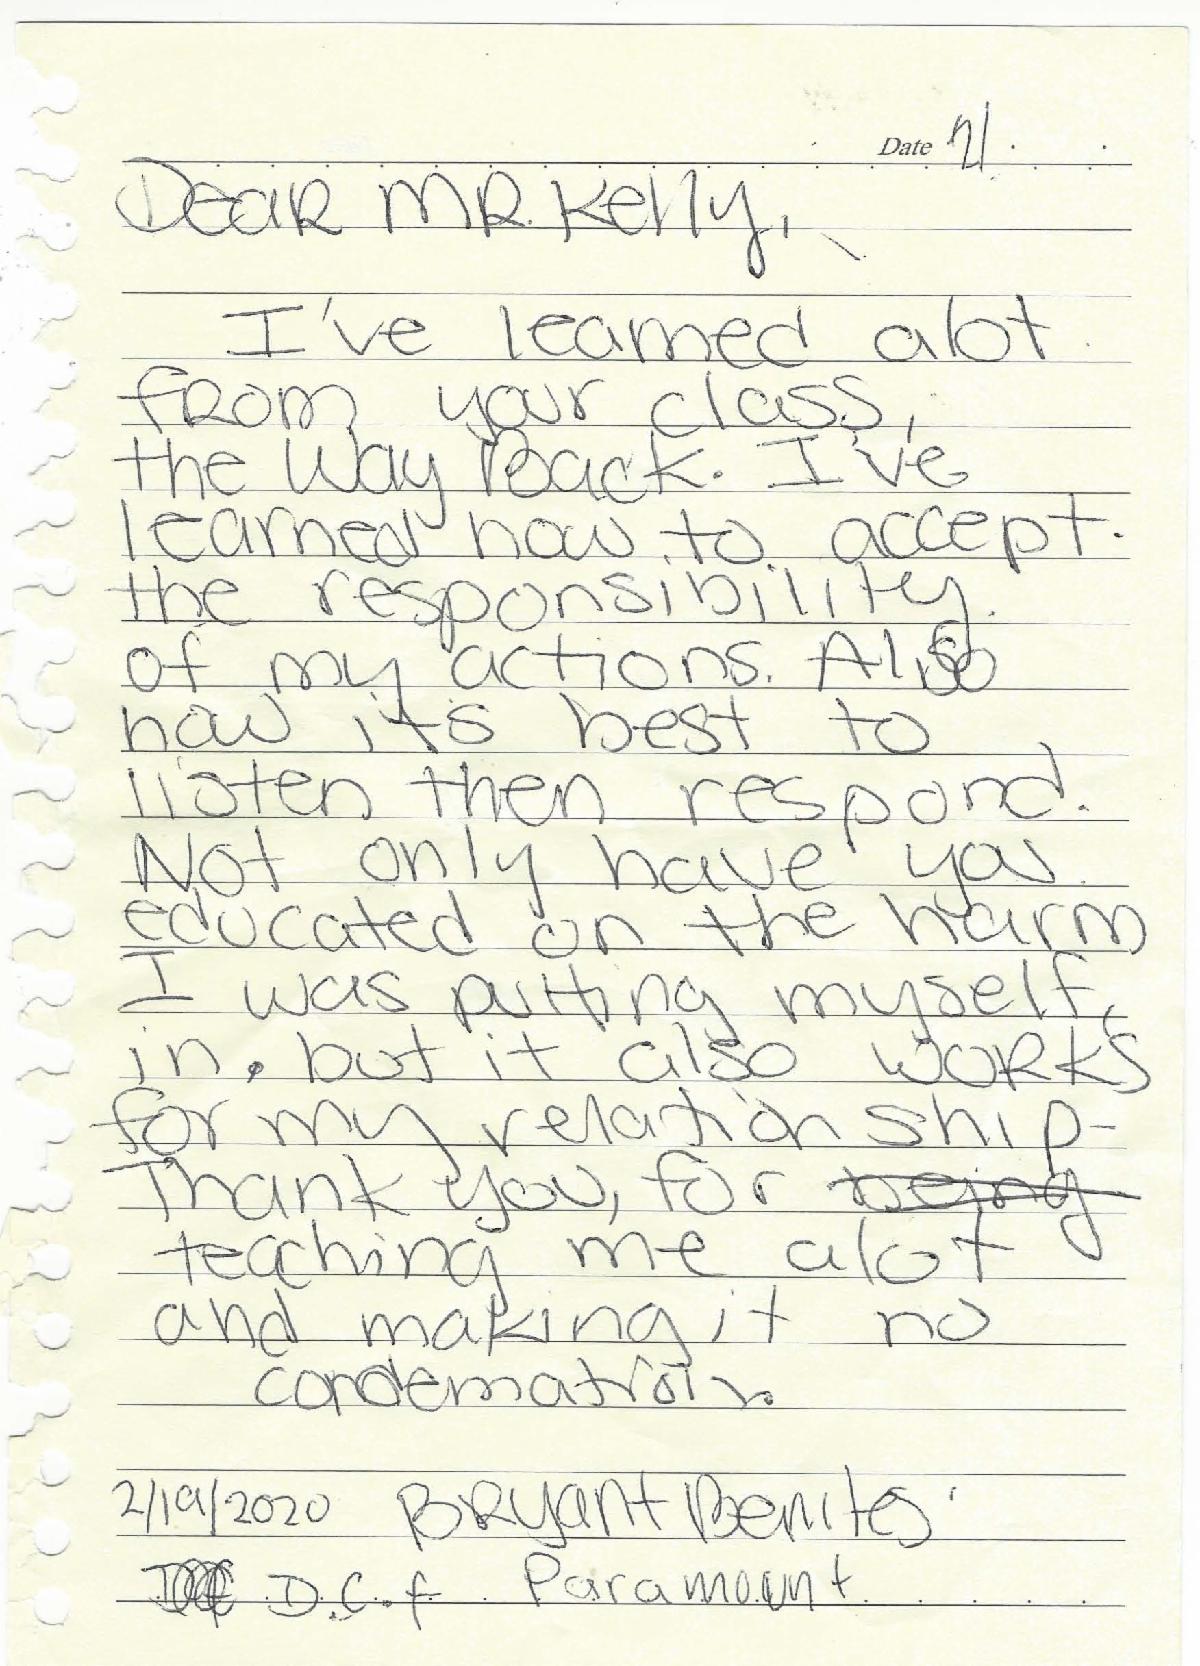 Date 2/
Dear MR. Kelly,
I've learned alot
from your class,
the Way Back. I've
learned how to accept
the responsibility
of my actions. Also
how it's best to
listen then respond.
Not only have you
educated on the harm
I was putting myself
in, but it also works
for my relationship-
Thank you, for being
teaching me alot
and making it no
condemation.
2/19/2020 Bryant Benites
D.C.f Paramount